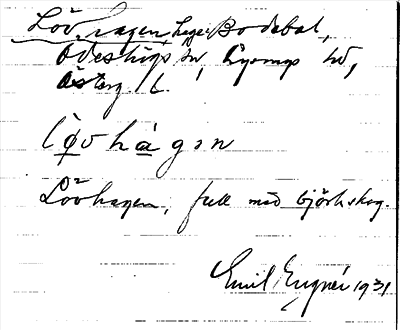 Lövhagen, hage, Bodebol,
Ödeshögs sn, Lysings hd,
Österg. l.
lǫ̈vhàgȧn
Lövhagen, full med björkskog.
Emil Engnér 1931